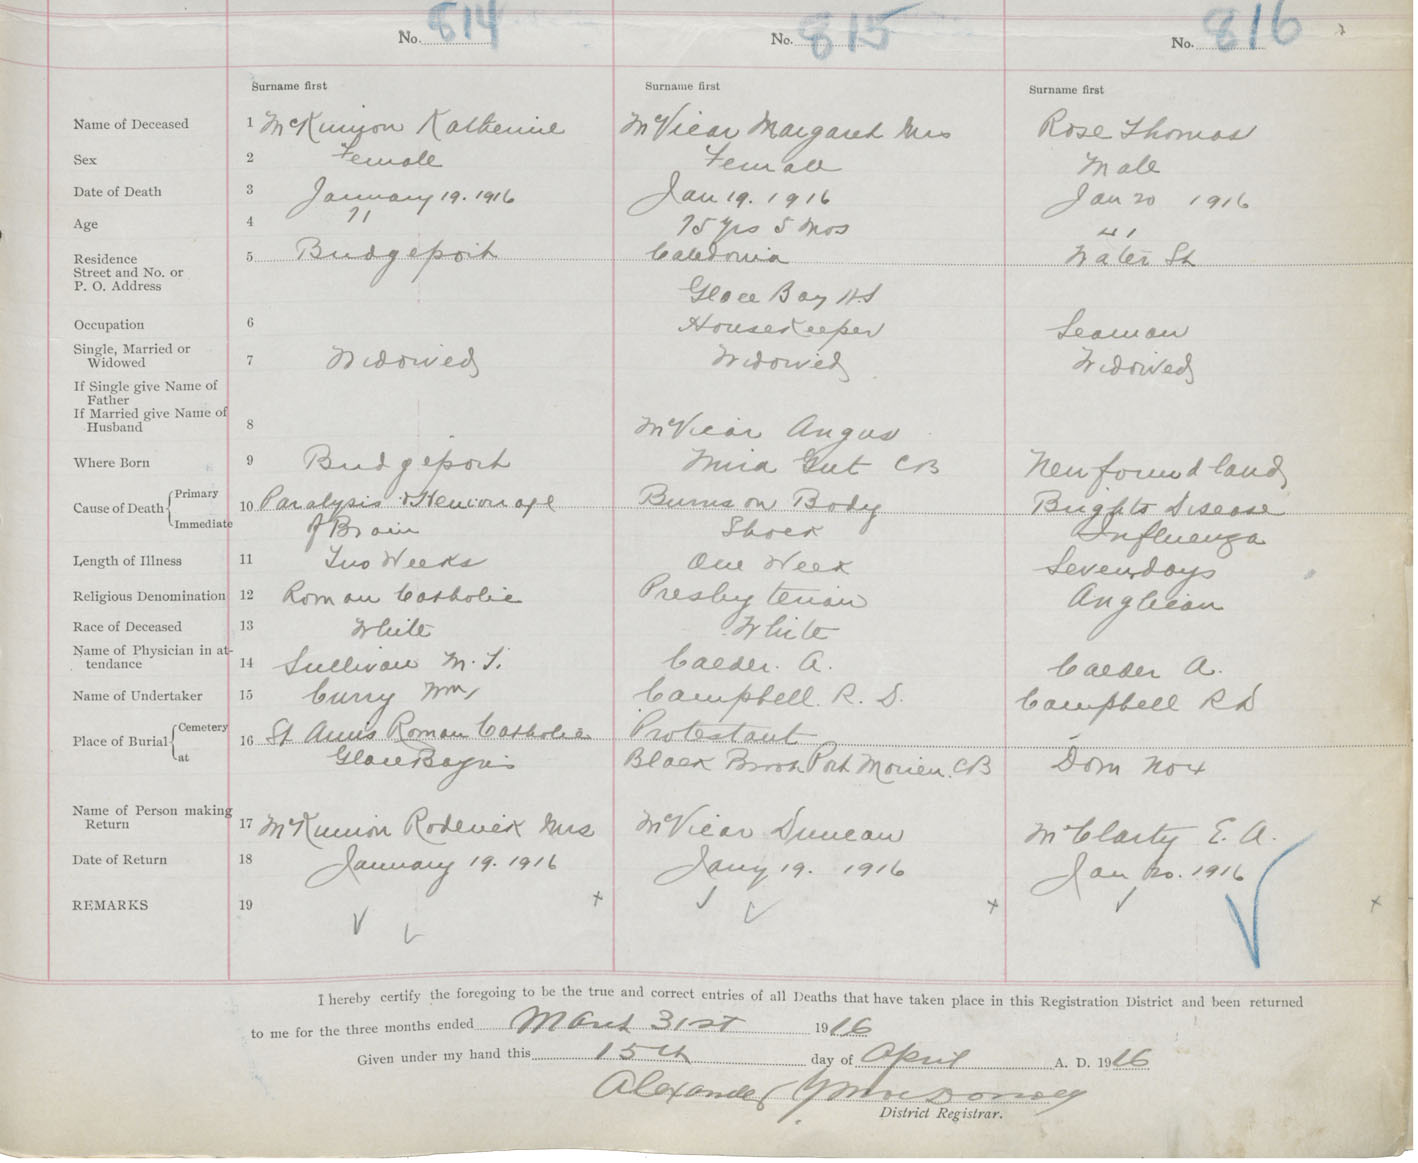 No. 814 No. 815 No. 816
Surname first Surname first Surname first
Name of Deceased 1 McKinnon Katherine McVicar Margaret Mrs Rose Thomas
Sex 2 Female Female Male
Date of Death 3 January 19. 1916 Jan 19. 1916 Jan 20 1916
Age 4 71 75 yrs 5 Mos 41
Residence 5 Bridgeport Caledonia Water St
Street and No. or
P. O. Address Glace Bay N.S
Occupation 6 Housekeeper Seaman
Single, Married or
Widowed 7 Widowed Widowed Widowed
If Single give Name of
Father
If Married give Name of
Husband 8 McVicar Angus
Where Born 9 Bridgeport Mira Gut CB Newfoundland
Cause of Death { Primary 10 Paralysis & Hemorage Burns on Body Brights Disease
Immediate of Brain Shock Influenza
Length of Illness 11 Two Weeks One Week Seven days
Religious Denomination 12 Roman Catholic Presbyterian Anglican
Race of Deceased 13 White White
Name of Physician in at-
tendance 14 Sullivan M. T. Calder. A. Calder A.
Name of Undertaker 15 Curry Wm Campbell. R. D. Campbell R D
Place of Burial { Cemetery 16 St Anns Roman Catholic Protestant
at Glace Bay Black Brook Port Morien. CB Dom No 4
Name of Person making
Return 17 McKinnon Roderick Mrs McVicar Duncan McClarty E. A.
Date of Return 18 January 19. 1916 Jany 19. 1916 Jan 20. 1916
REMARKS 19
I hereby certify the foregoing to be the true and correct entries of all Deaths that have taken place in this Registration District and been returned
to me for the three months ended March 31st 1916
Given under my hand this 15th day of April A. D. 1916
Alexander
District Registrar.